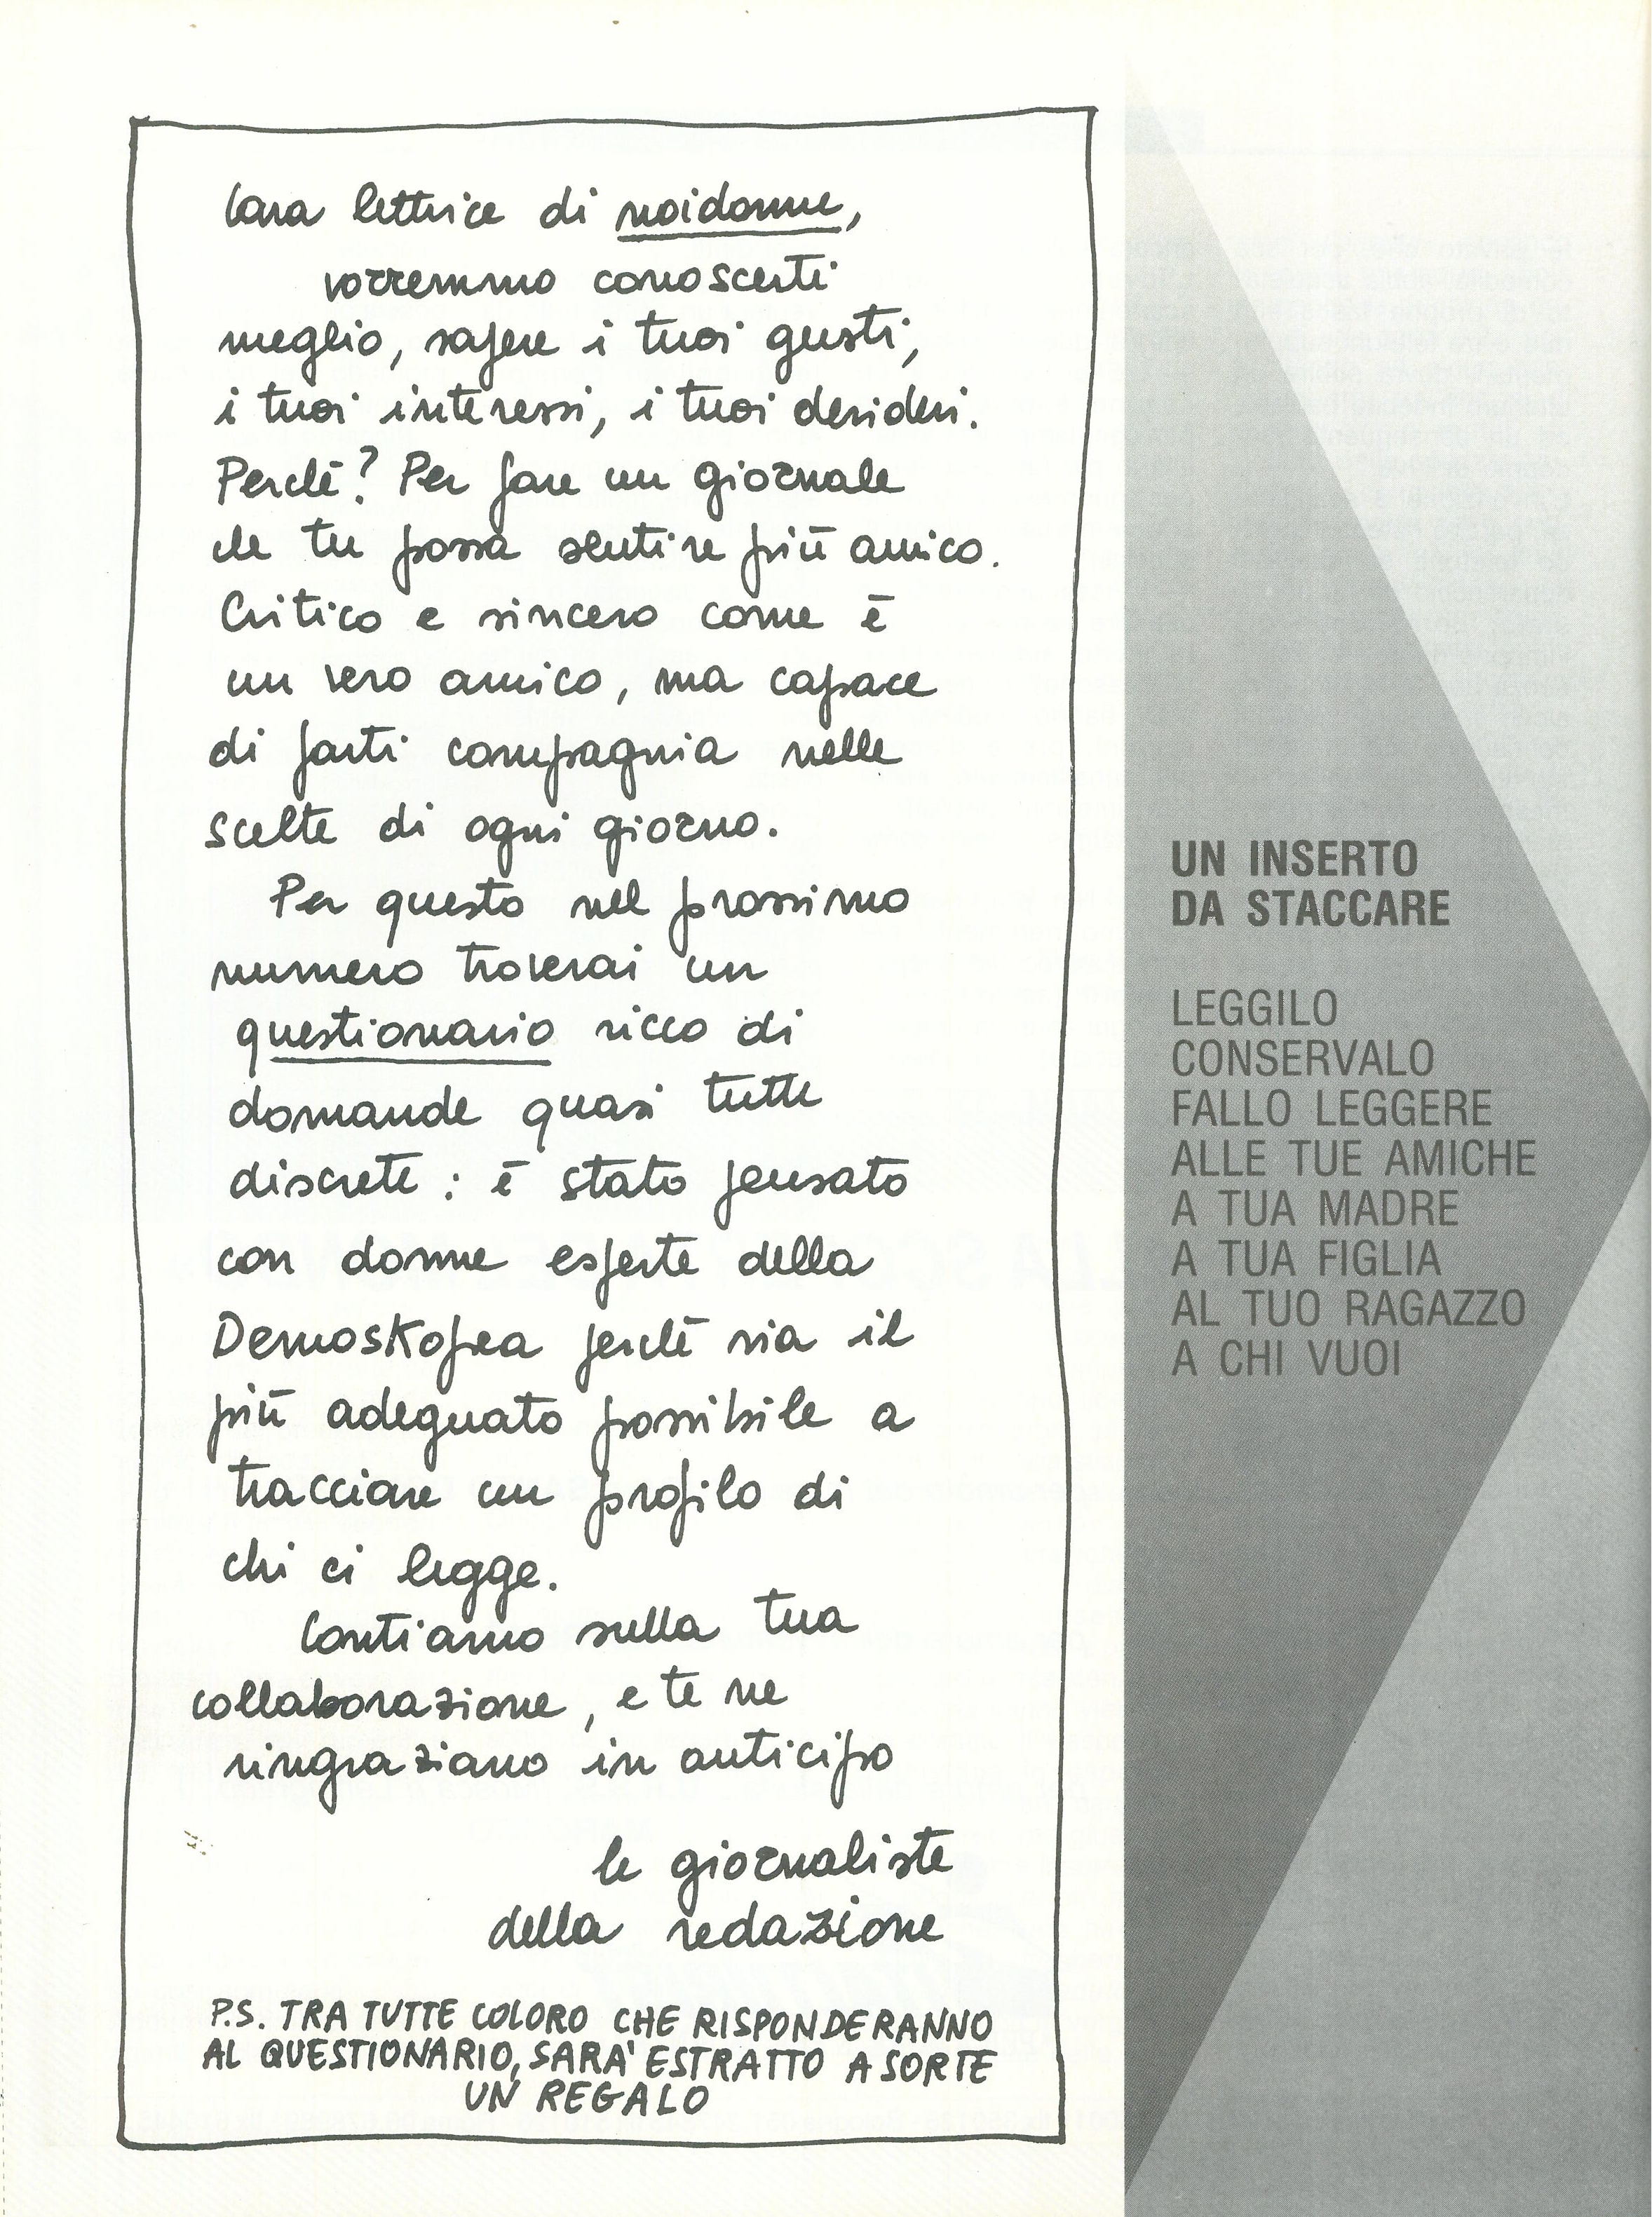 Cara lettrice di noidonne,
vorremmo conoscerti
meglio, sapere i tuoi gusti,
i tuoi interessi, i tuoi desideri.
Perchē? Per fare un giornale
che tu possa sentire più amico.
Critico e sincero come ē
un vero amico, ma capace
di farti compagnia nelle
scelte di ogni giorno.
Per questo nel prossimo
numero troverai un
questionario ricco di
domande quasi tutte
discrete: ē stato pensato
con donne esperte della
Demoskopea perchē sia il
più adeguato possibile a
tracciare un profilo di
chi ci legge.
Contiamo sulla tua
collaborazione, e te ne
ringraziamo in anticipo
le giornaliste
della redazione
P.S. TRA TUTTE COLORO CHE RISPONDERANNO
AL QUESTIONARIO, SARA' ESTRATTO A SORTE
UN REGALO
UN INSERTO
DA STACCARE
LEGGILO
CONSERVALO
FALLO LEGGERE
ALLE TUE AMICHE
A TUA MADRE
A TUA FIGLIA
AL TUO RAGAZZO
A CHI VUOI